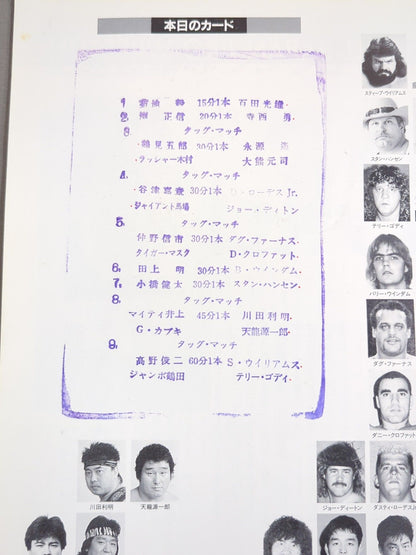 本日のカード
15分1本 百田光雄.
2. 渕 正信 20分1本 寺西 勇.
3. タッグ・マッチ
・鶴見五郎 30分1本 永源 遙
・ラッシャー木村 大熊元司
4. タッグ・マッチ
・谷津嘉章 30分1本 D・ローデス Jr.
・ジャイアント馬場 ジョー・ディトン
5. タッグ・マッチ
仲野信市 30分1本 ダグ・ファーナス.
タイガー・マスク D・クロファット.
6. 田上 明 30分1本 B・ウインダム.
7. 小橋健太 30分1本 スタン・ハンセン.
8. タッグ・マッチ
マイティ井上 45分1本 川田利明.
G・カブキ 天龍源一郎.
9. タッグ・マッチ
高野俊二 60分1本 S・ウイリアムス.
ジャンボ鶴田 テリー・ゴディ.
スティーブ・ウイリアムス
スタン・ハンセン
テリー・ゴディ
バリー・ウインダム
ダグ・ファーナス
ダニー・クロファット
川田利明
天龍源一郎
ジョー・ディートン
ダスティ・ローデスJr